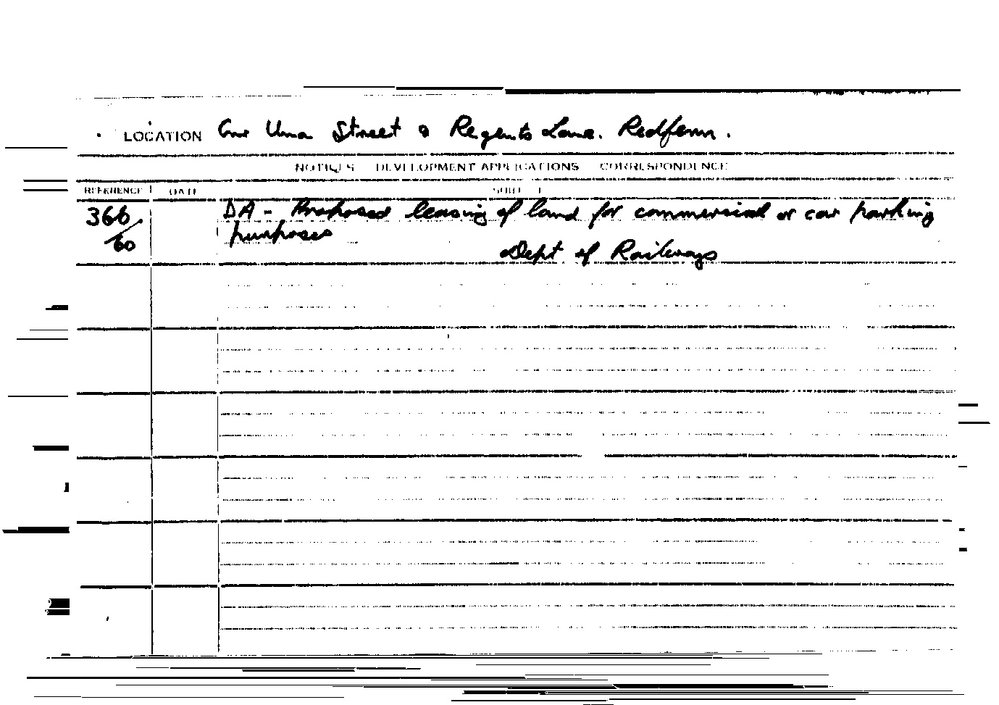 LOCATION Cnr Una Street & Regents Lane. Redfern.
NOTICES DEVELOPMENT APPLICATIONS CORRESPONDENCE
REFERENCE DATE SUBJECT
366/60 DA - Proposed leasing of land for commercial or car parking
purposes
Dept of Railways